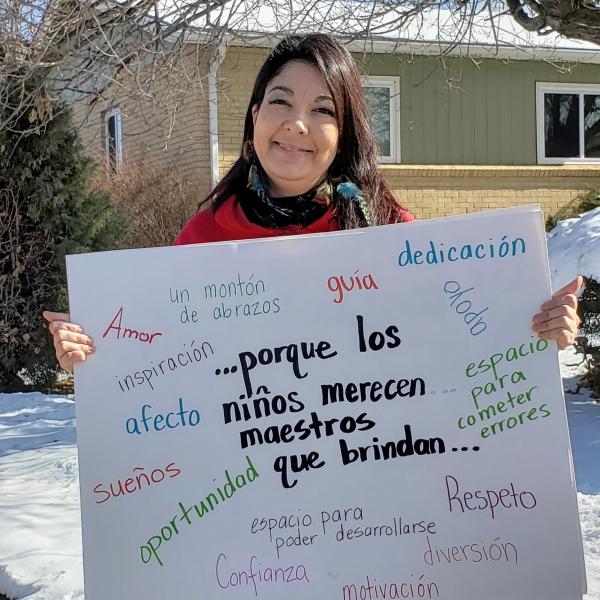 dedicación
un montón
de abrazos
guía
apoyo
Amor
inspiración
...porque los
niños merecen...
maestros
que brindan...
espacio
para
cometer
errores
afecto
sueños
oportunidad
Respeto
espacio para
poder desarrollarse
Confianza
diversión
motivación